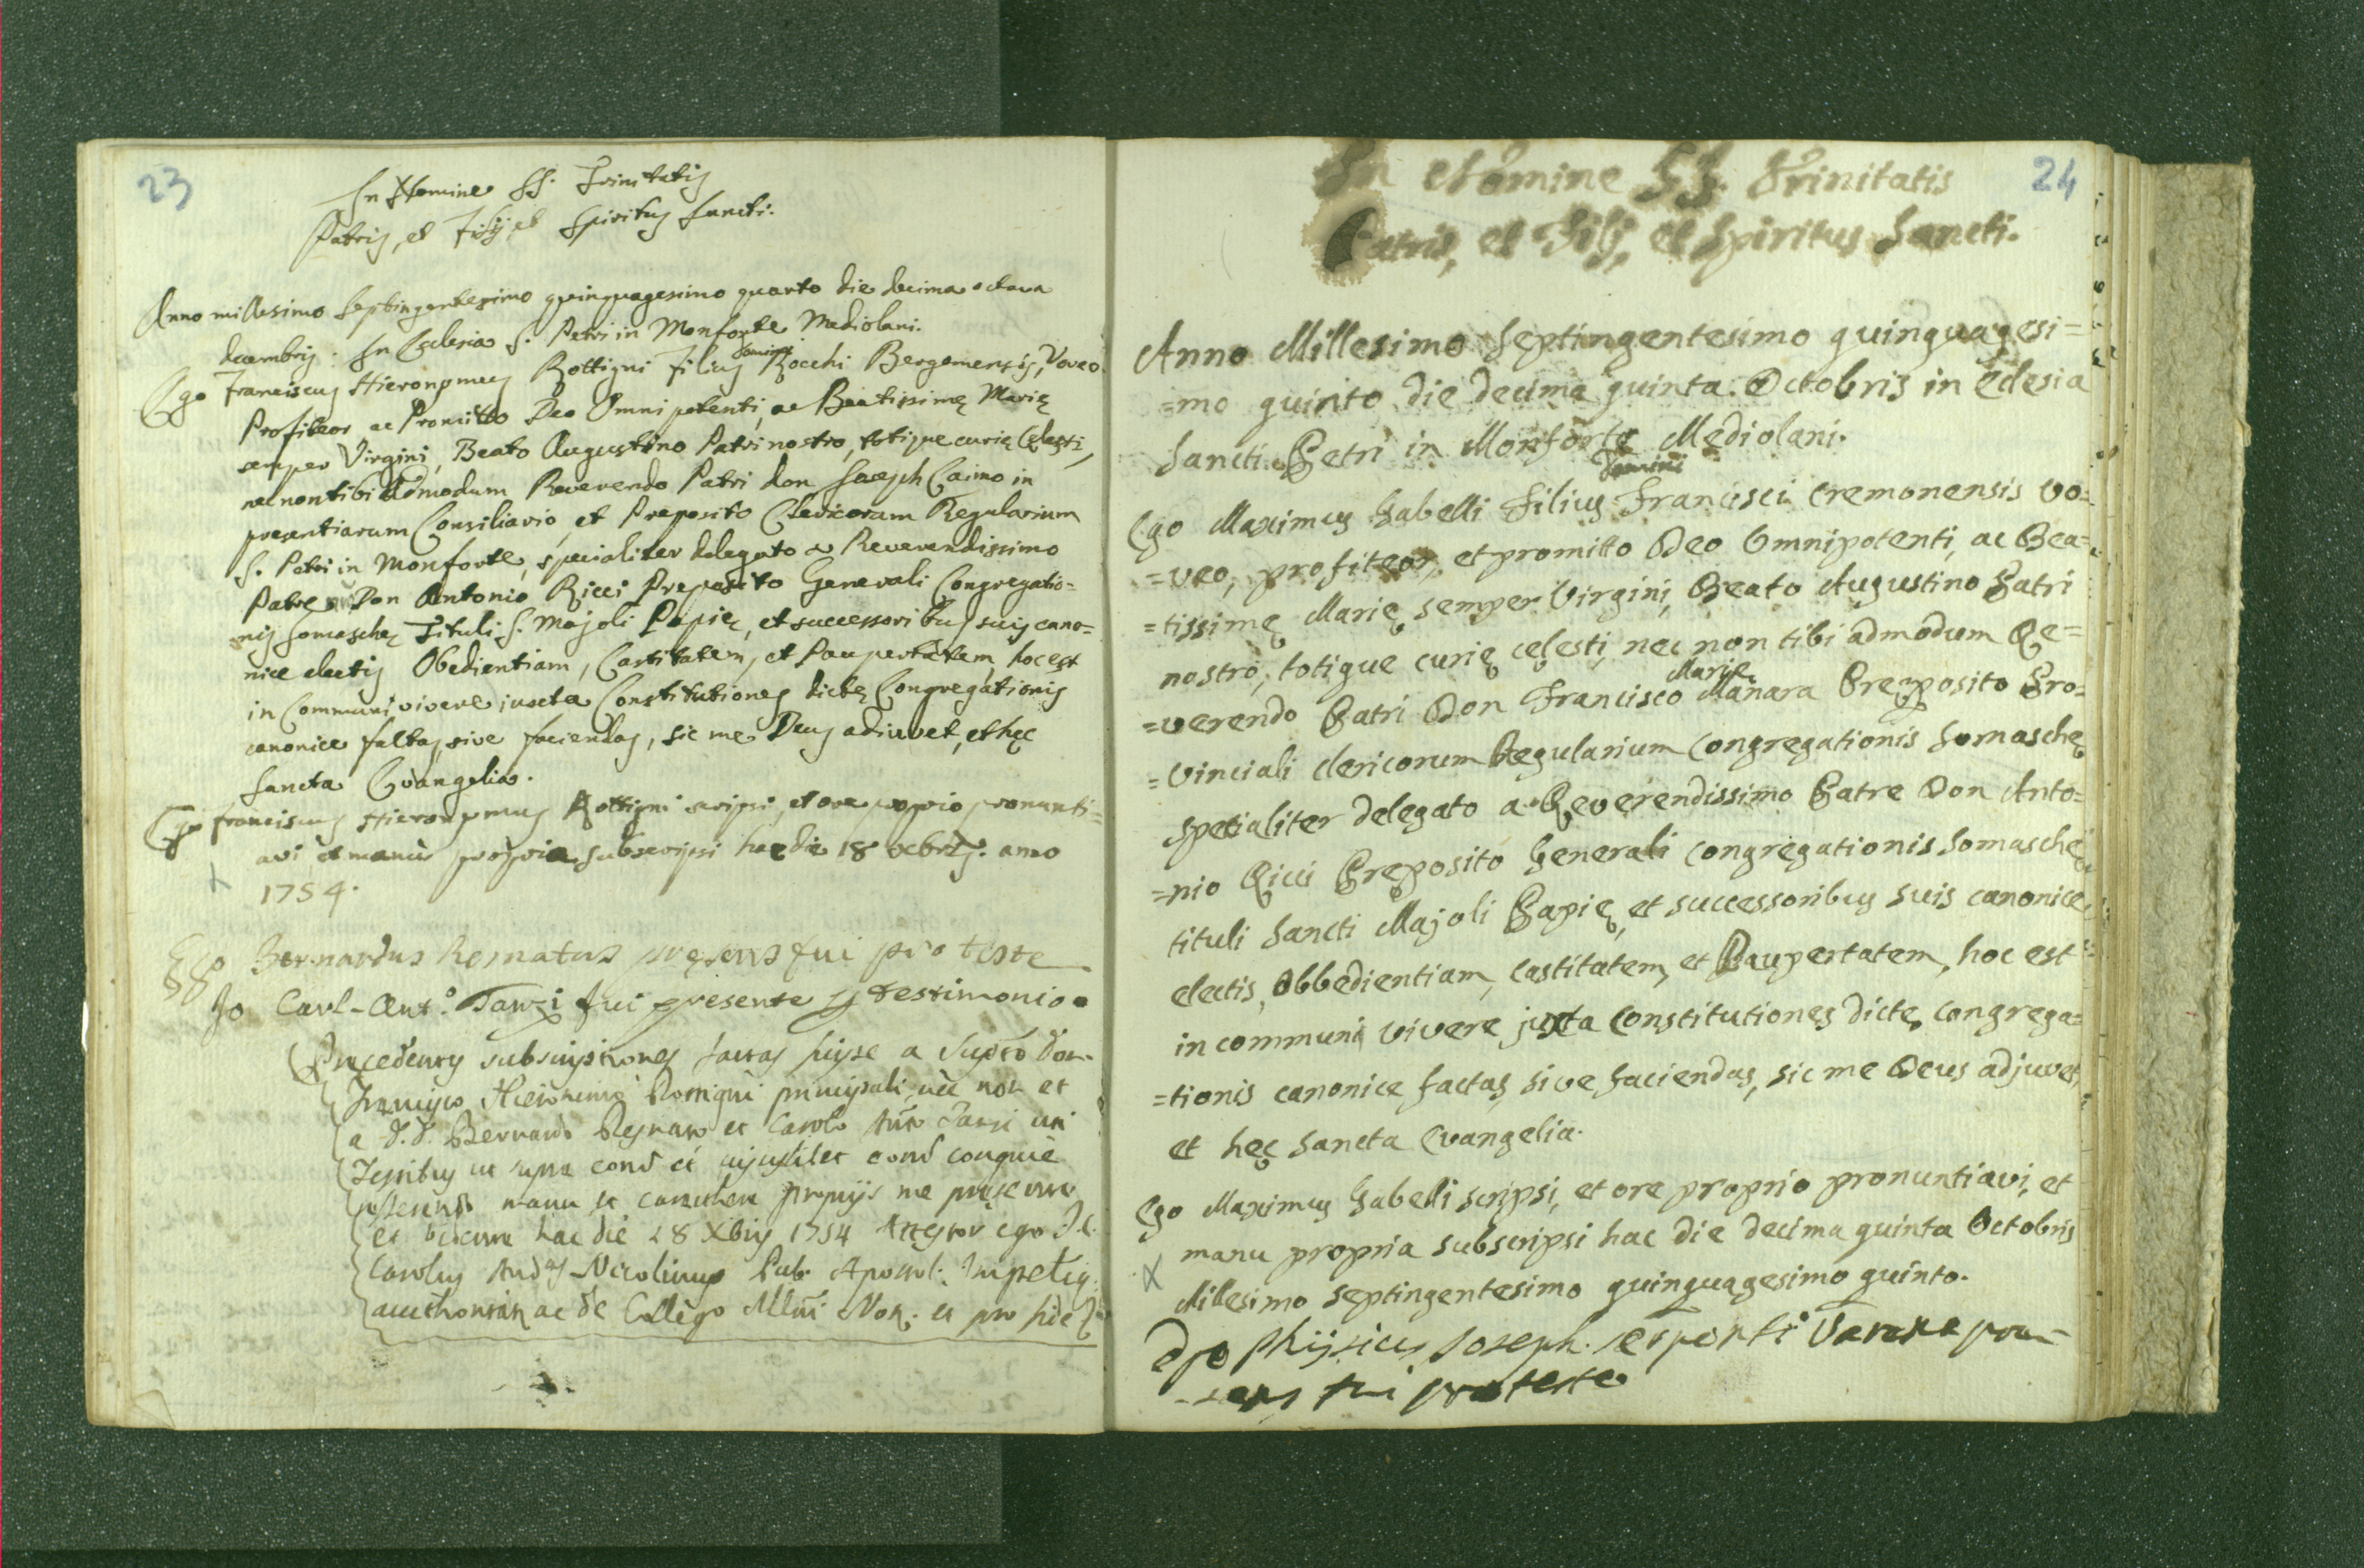 23
In Nomine SS. Trinitatis
Patris, et Filij, et Spiritus Sancti.
Anno millesimo septingentesimo quinquagesimo quarto die decima octava
decembris. In Ecclesia S. Petri in Monforte Mediolani.
Domini
Ego Franciscus Hieronymus Rottigni Filius Rocchi Bergomensis, Voveo
Profiteor ac Promitto Deo Omnipotenti, ac Beatissimę Marię
semper Virgini, Beato Augustino Patri nostro, totique curię Cęlesti,
nec non tibi Admodum Reverendo Patri don Joseph Caimo in
presentiarum Consiliario, et Preposito Clericorum Regularium
S. Petri in Monforte, specialiter delegato a Reverendissimo
Patre Don Antonio Ricci Preposito Generali Congregatio=
nis Somaschę Tituli S. Majoli Papię, et successoribus suis cano=
nice electis Obedientiam, Castitatem, et Paupertatem, hoc est
in Communi vivere iuxta Constitutiones dictę Congregationis
canonice factas, sive faciendas, sic me Deus adiuvet, et hęc
Sancta Evangelia.
Ego Franciscus Hieronymus Rottigni scripsi, et ore proprio pronunti=
avi et manu propria subscripsi hac die 18 Xcbris. anno
1754.
Ego Bernardus presens fui pro teste
Io Carl-Ant.º Tanzi fui presente p testimonio
Precedentes subscriptiones factas fuisse a Supto Don
Francisco Hieronimo Rottigni principali, nec non et
a D. D. Bernardo et Carolo Antº Tanzi uti
Testibus ut supra
manu et caractere proprijs me presente
et vidente hac die 18 Xbris 1754 Attestor ego
Carolus Nicolinus Pub. Apostol.
ac de Collegio Mlni Not. et pro fide
24
In Nomine SS. Trinitatis
Patris, et Filij, et Spiritus Sancti.
Anno Millesimo Septingentesimo quinquagesi=
=mo quinto die decima quinta Octobris in Eclesia
Sancti Petri in Monforte Mediolani.
Domini
Ego Maximus Gabelli Filius Francisci Cremonensis vo=
=veo, profiteor, et promitto Deo Omnipotenti, ac Bea=
=tissimę Marię semper Virgini, Beato Augustino Patri
nostro, totique curię cęlesti, nec non tibi admodum Re=
Marię
=verendo Patri Don Francisco Manara Preposito Pro=
=vinciali clericorum Regularium Congregationis Somaschę
specialiter delegato a Reverendissimo Patre Don Anto=
=nio Ricci Preposito Generali Congregationis Somaschę
tituli Sancti Majoli Papię, et successoribus suis canonice
electis, Obbedientiam, Castitatem, et Paupertatem, hoc est
in communi vivere juxta Constitutiones dictę congrega=
=tionis canonice factas, sive faciendas, sic me Deus adjuvet,
et hęc Sancta Evangelia.
Ego Maximus Gabelli scripsi, et ore proprio pronuntiavi, et
manu propria subscripsi hac die decima quinta Octobris
Millesimo septingentesimo quinquagesimo quinto.
Ego Phijsicus Joseph. Varena prę=
=sens fui pro teste